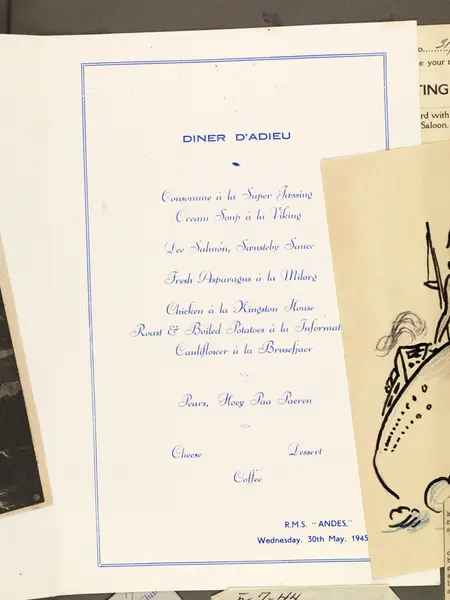 DINER D'ADIEU
Consomme à la Super Jæssing
Cream Soup à la Viking
Lee Salmon, Sørnsteby Sauce
Fresh Asparagus à la Milorg
Chicken à la Kingston House
Roast & Boiled Potatoes à la Informat
Cauliflower à la Brusehjær
Pears, Hoey Paa Pæren
Cheese Dessert
Coffee
R.M.S. "ANDES."
Wednesday, 30th May, 1945
e your
TING
rd with
Saloon.
5-7-44